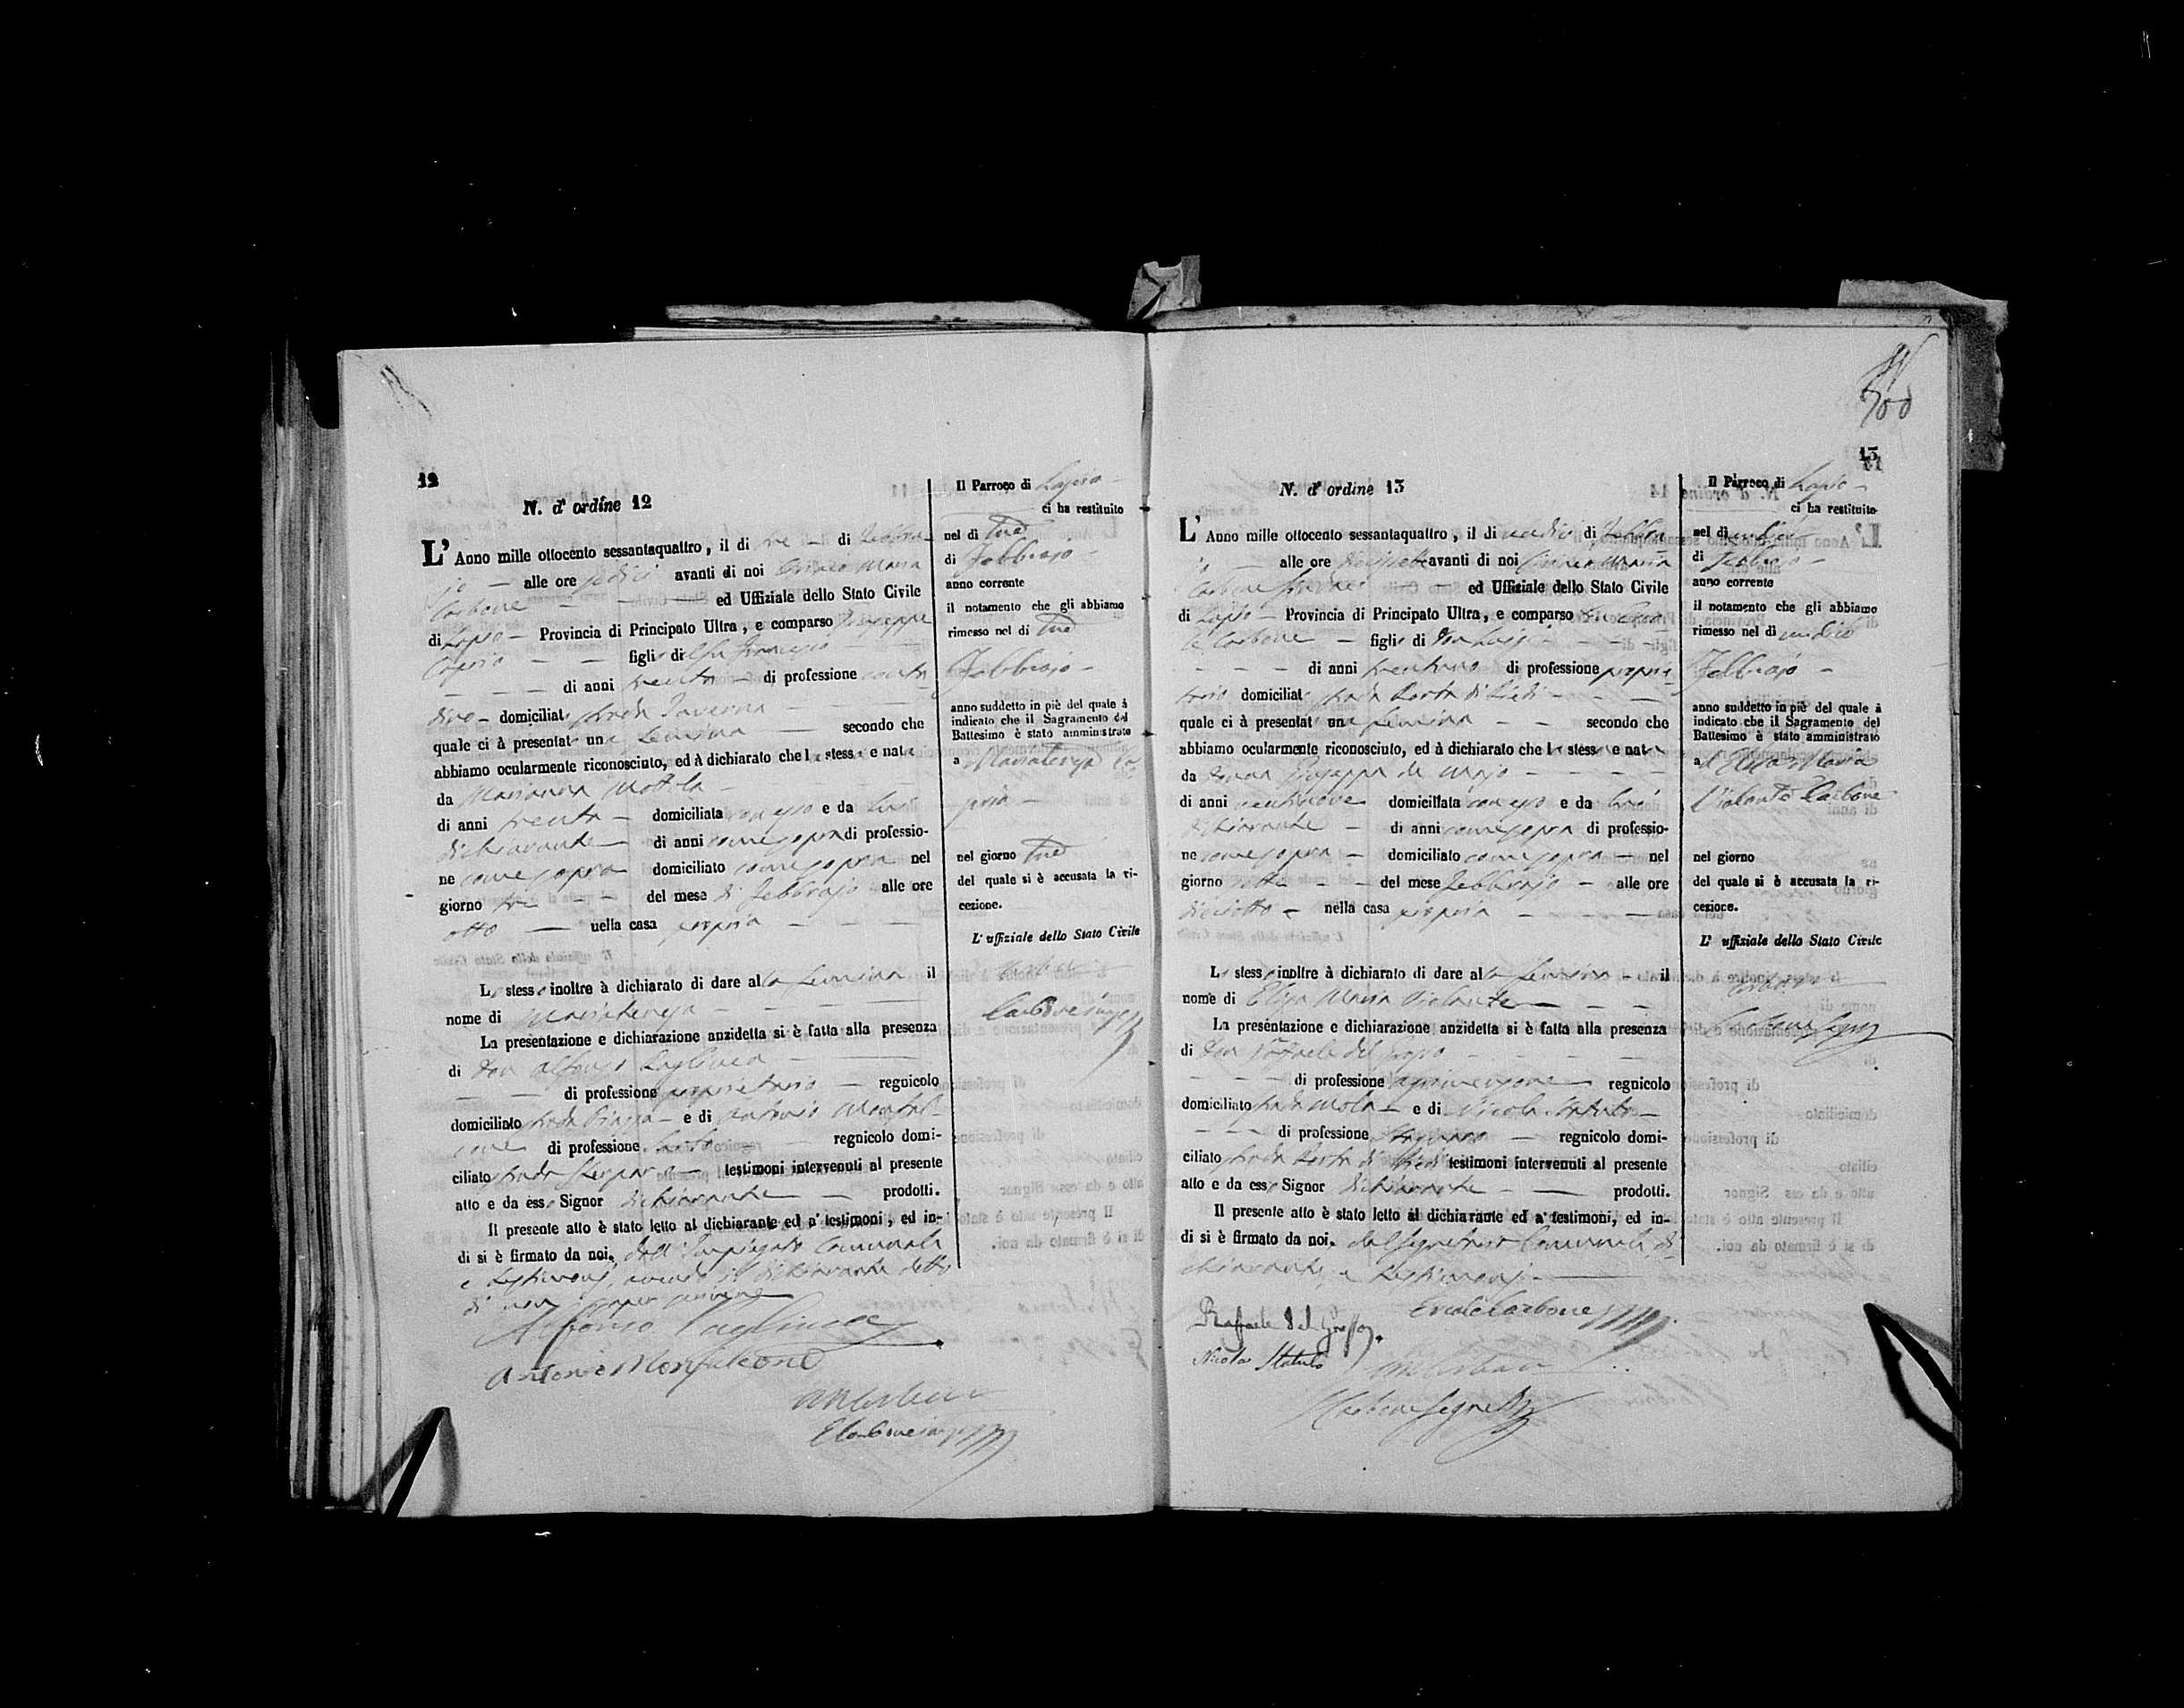 12
N. d' ordine 12
L' Anno mille ottocento sessantaquattro, il di tre di Febbra
jo alle ore sedici avanti di noi Maria
Carbone ed Uffiziale dello Stato Civile
di Lapio Provincia di Principato Ultra, e comparso Giuseppe
Caprio figlio di fu
di anni trenta di professione conta
dino domiciliato strada Taverna
quale ci à presentato una femina secondo che
abbiamo ocularmente riconosciuto, ed à dichiarato che la stessa e nata
da Marianna Mottola
di anni trenta domiciliata con esso e da lui
dichiarante di anni come sopra di professio-
ne come sopra domiciliato come sopra nel
giorno tre del mese di Febbrajo alle ore
otto nella casa propria
Lo stesso inoltre à dichiarato di dare alla femina il
nome di Mariateresa
La presentazione e dichiarazione anzidetta si è fatta alla presenza
di Don Alfonso Tagliuca
di professione proprietario regnicolo
domiciliato strada Piazza e di Antonio Monfal
cone di professione regnicolo domi-
ciliato strada testimoni intervenuti al presente
atto e da esso Signor dichiarante prodotti.
Il presente atto è stato letto al dichiarante ed a' testimoni, ed in-
di si è firmato da noi, dall' Impiegato Comunale
e testimonj, avendo il dichiarante detto
di non saper scrivere
Alfonso Tagliuca
Antonio Monfalcone
Il Parroco di Lapio
ci ha restituito
nel di tre
di Febbrajo
anno corrente
il notamento che gli abbiamo
rimesso nel di tre
Febbrajo
anno suddetto in piè del quale à
indicato che il Sagramento del
Battesimo è stato amministrato
a Mariateresa Ca
prio
nel giorno tre
del quale si è accusata la ri-
cezione.
L' uffiziale dello Stato Civile
13
N. d' ordine 13
L' Anno mille ottocento sessantaquattro, il di undici di Febbra
jo alle ore diciasette avanti di noi Maria
Carbone ed Uffiziale dello Stato Civile
di Lapio Provincia di Principato Ultra, e comparso Don Erco
le Carbone figlio di Don Luigi
di anni trentuno di professione proprie
tario domiciliato strada Porta di Piedi
quale ci à presentato una femina secondo che
abbiamo ocularmente riconosciuto, ed à dichiarato che la stessa e nata
da Donna Giuseppa de Majo
di anni ventinove domiciliata con esso e da lui
dichiarante di anni come sopra di professio-
ne come sopra domiciliato come sopra nel
giorno del mese Febbrajo alle ore
dieciotto nella casa propria
Lo stesso inoltre à dichiarato di dare alla femina il
nome di Elisa Maria Violante
La presentazione e dichiarazione anzidetta si è fatta alla presenza
di Don Raffaele del Grosso
di professione agrimensore regnicolo
domiciliato strada Mola e di Nicola Statuto
di professione regnicolo domi-
ciliato strada Porta di Piedi testimoni intervenuti al presente
atto e da esso Signor dichiarante prodotti.
Il presente atto è stato letto al dichiarante ed a' testimoni, ed in-
di si è firmato da noi, dal Segretario Comunale di
chiarante, e testimonj
Ercole Carbone
Raffaele del Grosso
Nicola Statuto
Carbone Segret
Il Parroco di Lapio
ci ha restituito
nel di undici
di Febbrajo
anno corrente
il notamento che gli abbiamo
rimesso nel di undici
Febbrajo
anno suddetto in piè del quale à
indicato che il Sagramento del
Battesimo è stato amministrato
ad Elisa Maria
Violante Carbone
nel giorno
del quale si è accusata la ri-
cezione.
L' uffiziale dello Stato Civile